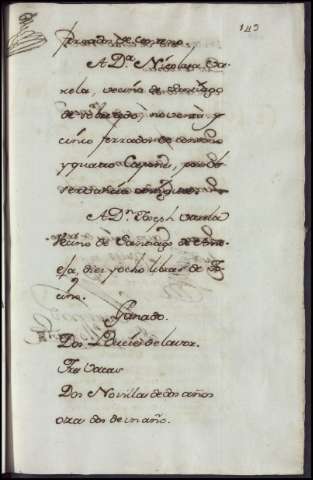 143
ferrados de centeno.
A D.ª Nicolasa Va-
rela, vecina de Santiago
noventa y
cinco ferrados de centeno
y quatro Capones,
A D.n Joseph Varela
vecino de Santiago de
diez y ocho libras de to-
cino.
Ganado.
Dos Bueies de lavor.
Tres Vacas
Dos Novillas de dos años
otra dos de un año.